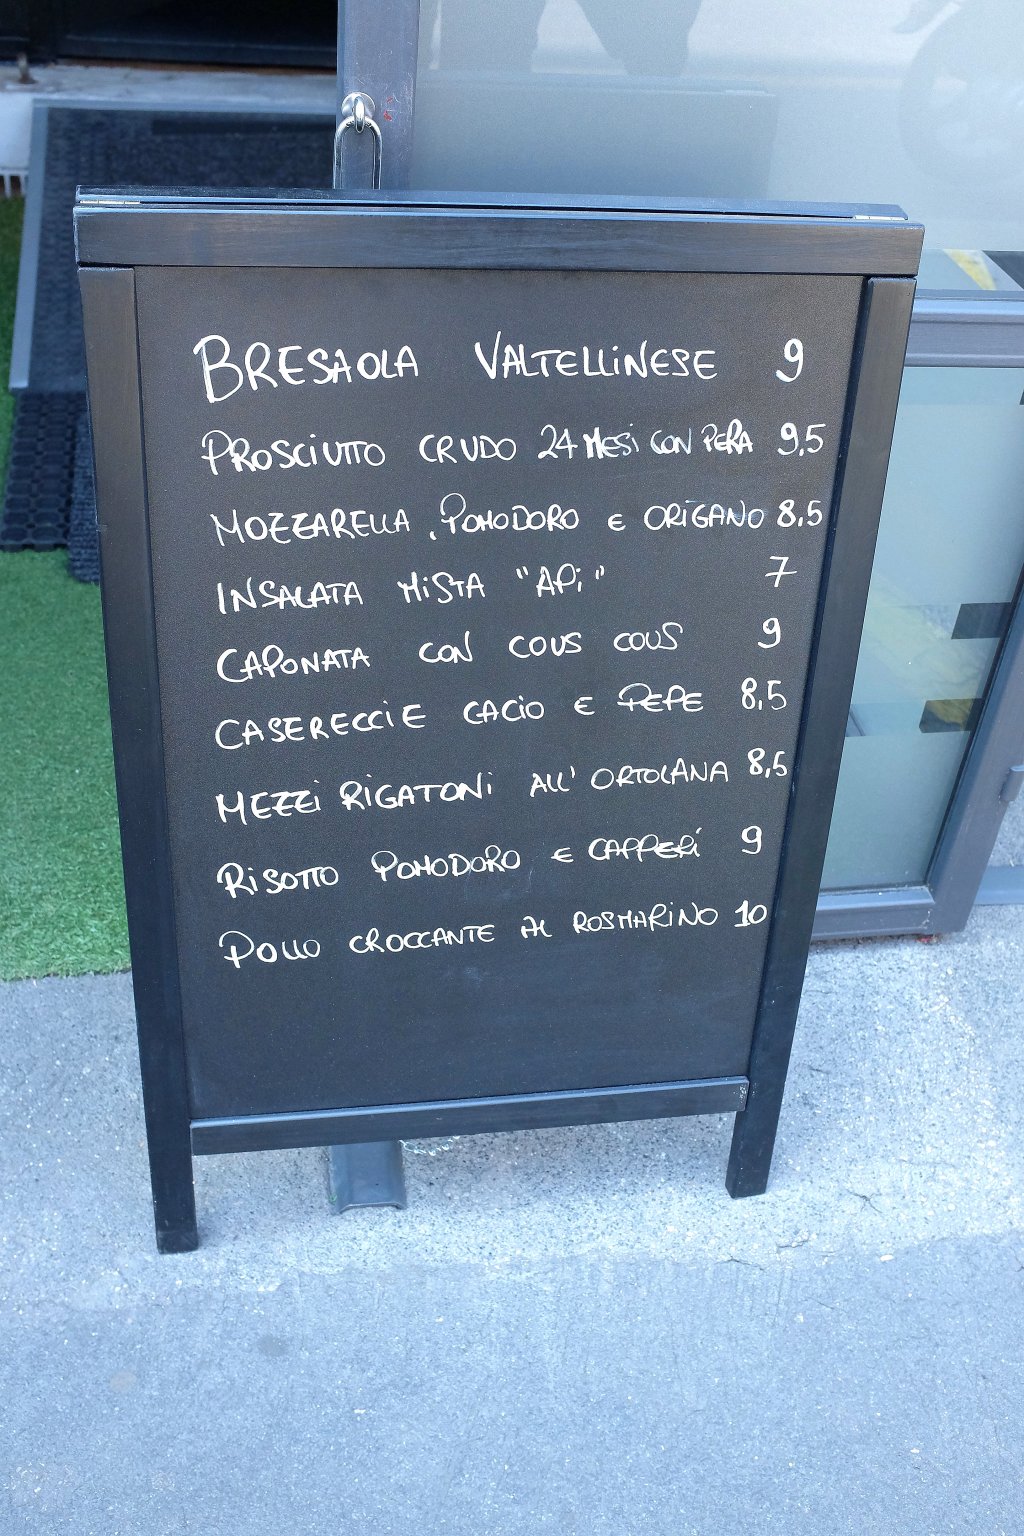 BRESAOLA VALTELLINESE 9
PROSCIUTTO CRUDO 24 MESI CON PERA 9,5
MOZZARELLA, POMODORO E ORIGANO 8,5
INSALATA MISTA "APi" 7
CAPONATA CON COUS COUS 9
CASERECCIE CACIO E PEPE 8,5
MEZZI RIGATONI ALL' ORTOLANA 8,5
RISOTTO POMODORO E CAPPERI 9
POLLO CROCCANTE AL ROSMARINO 10